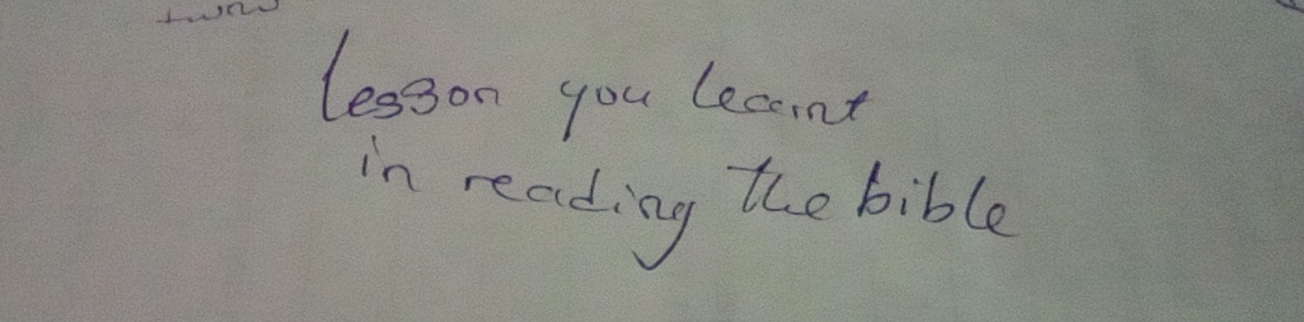 lesson you learnt
in reading the bible